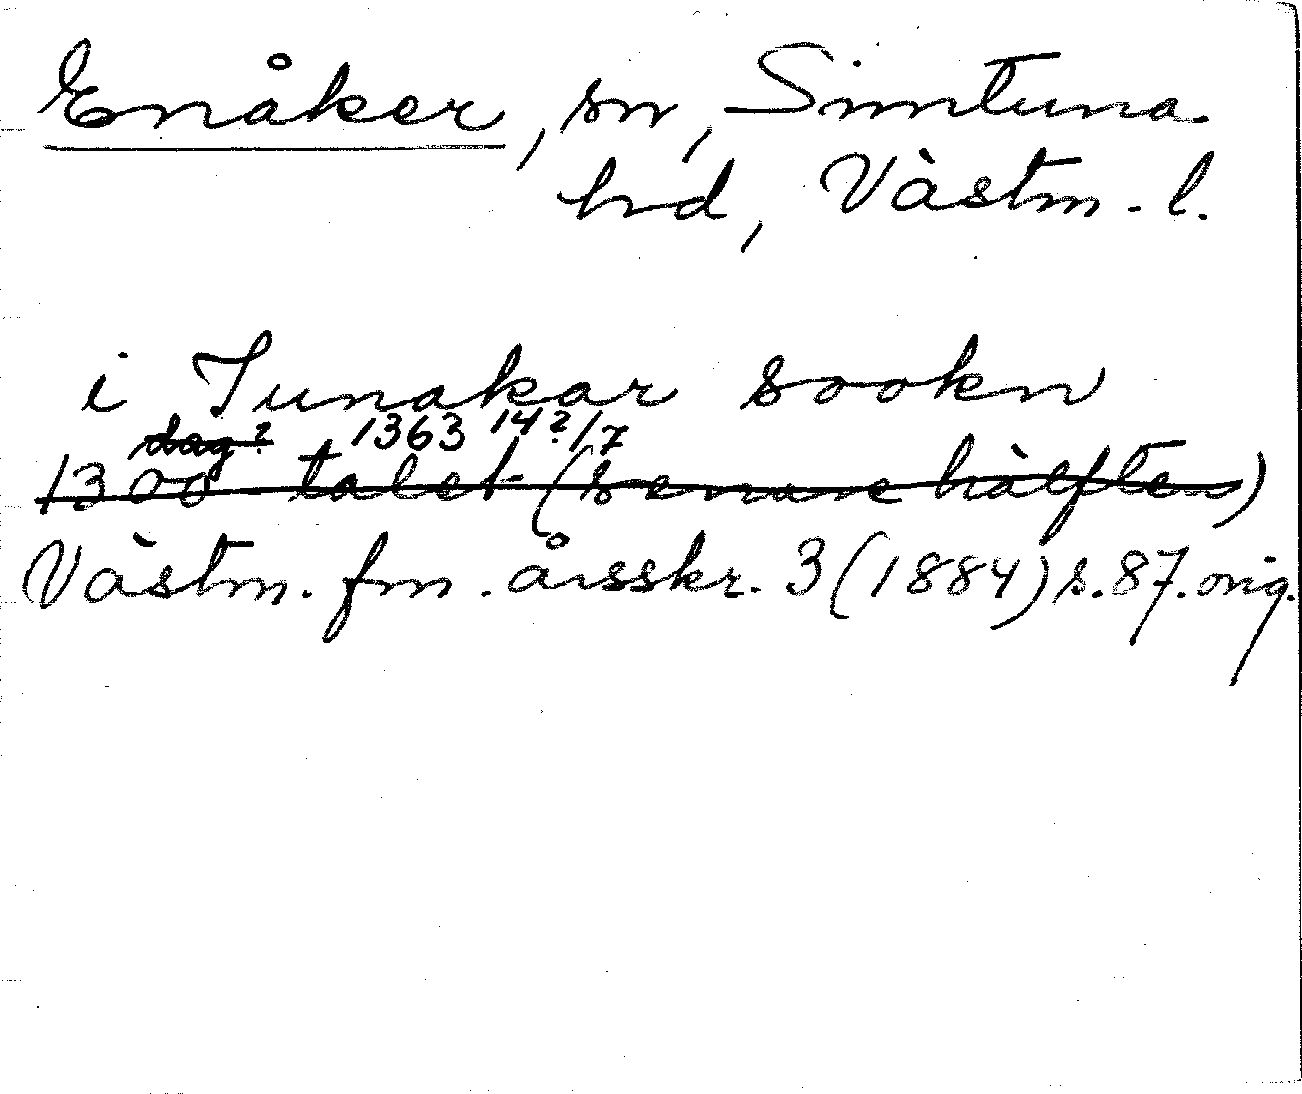 Enåker, sn, Simtuna
hd, Västm. l.
i Junakar sookn
dag? 1363 14?/7
1300 talet (senare hälften)
Västm. fm. årsskr. 3 (1884) s. 87. orig.